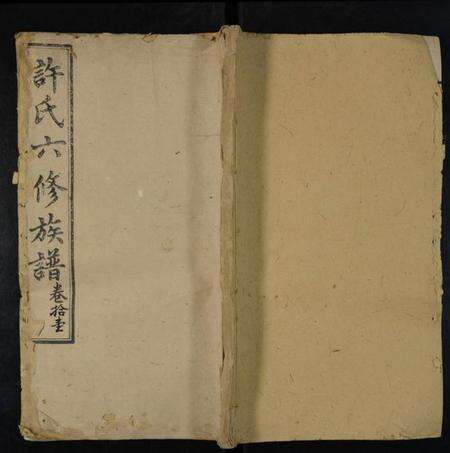 許氏六修族譜卷拾壹